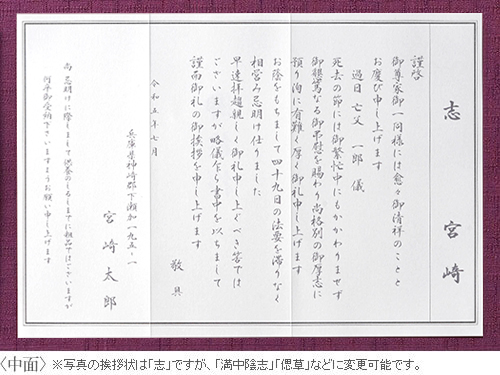 志 宮崎
謹啓
御尊家御一同様には愈々御清祥のことと
お慶び申し上げます
過日 亡父 一郎 儀
死去の節には御繁忙中にもかかわりませず
御懇篤なる御弔慰を賜わり尚格別の御厚志に
預り洵に有難く厚く御礼申し上げます
お陰をもちまして四十九日の法要を滞りなく
相営み忌明け仕りました
早速拝趨親しく御礼申し上ぐべき筈では
ございますが略儀乍ら書中を以ちまして
謹而御礼の御挨拶を申し上げます
敬具
令和五年七月
兵庫県神崎郡下瀬加一九五-一
宮崎太郎
尚 忌明けに際しまして供養のしるしまでに粗品ではございますが
何卒御受納下さいますようお願い申し上げます
〈中面〉 ※写真の挨拶状は「志」ですが、「満中陰志」「偲草」などに変更可能です。